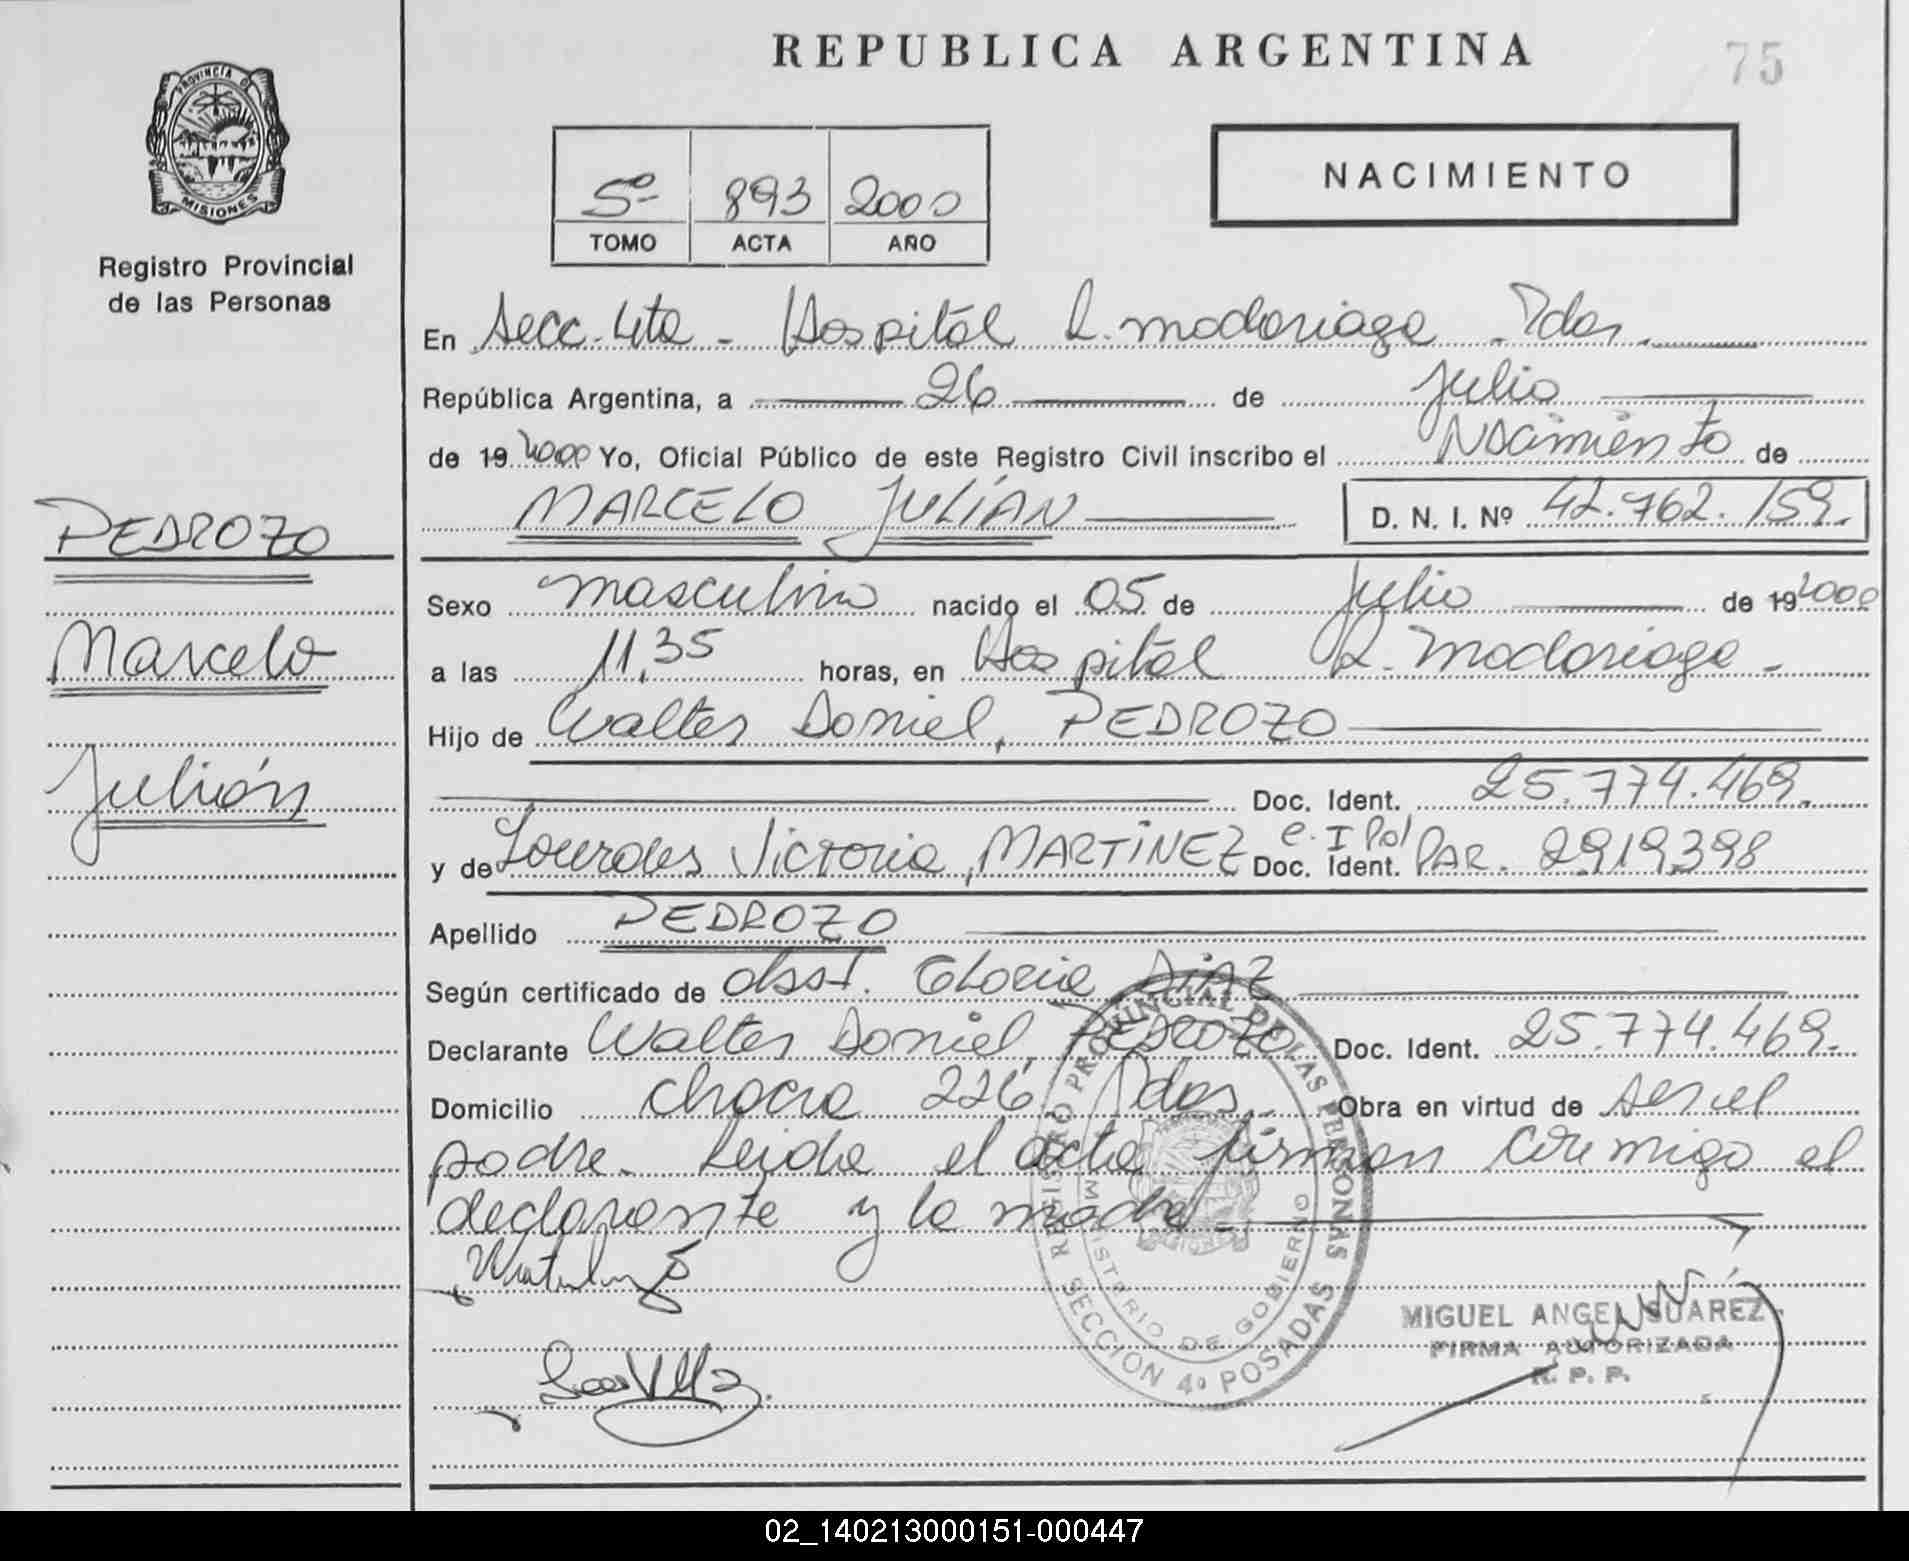 REPUBLICA ARGENTINA
75
PROVINCIA DE
MISIONES
Registro Provincial
de las Personas
5º 893 2000
TOMO ACTA AÑO
NACIMIENTO
En Secc. 4ta - Hospital R. Madariaga. Pdas.
República Argentina, a 26 de Julio
de 19 2000 Yo, Oficial Público de este Registro Civil inscribo el Nacimiento de
MARCELO JULIÁN D. N. I. Nº 42.762.159.
PEDROZO
Marcelo
Julián
Sexo masculino nacido el 05 de Julio de 19 2000
a las 11,35 horas, en Hospital R. Madariaga -
Hijo de Walter Daniel, PEDROZO
Doc. Ident. 25.774.469.
y de Lourdes Victoria, MARTÍNEZ Doc. Ident. C. I Pol PAR. 2919398
Apellido PEDROZO
Según certificado de obst. Gloria DIAZ
Declarante Walter Daniel, PEDROZO Doc. Ident. 25.774.469.
Domicilio chacra 226 Pdas. Obra en virtud de ser el
padre. Leida el acta firman conmigo el
declarante y la madre.
REGISTRO PROVINCIAL DE LAS PERSONAS
MINISTERIO DE GOBIERNO
SECCION 4ª POSADAS
MISIONES
MIGUEL ANGEL SUAREZ
FIRMA AUTORIZADA
R. P. P.
02_140213000151-000447